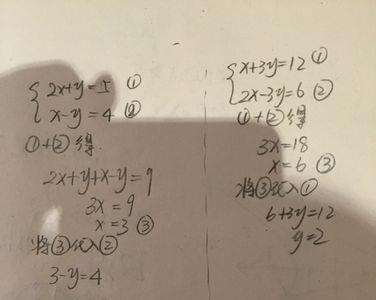 2x+y=5 ①
x-y=4 ②
①+②得.
2x+y+x-y=9
3x=9
x=3 ③
将③代入②
3-y=4
x+3y=12 ①
2x-3y=6 ②
①+②得
3x=18
x=6 ③
将③代入①
6+3y=12
y=2